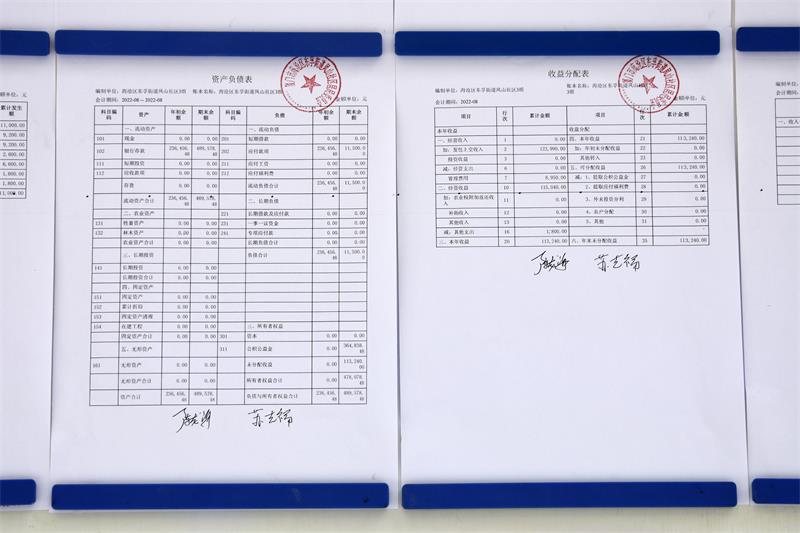 资产负债表
编制单位：海沧区东孚街道凤山社区3组
账本名称：海沧区东孚街道凤山社区3组
会计期间：2022-08—2022-08
金额单位：元
科目编码 资产 年初余额 期末余额 科目编码 负债 年初余额 期末余额
一、流动资产 一、流动负债
101 现金 0.00 0.00 201 短期借款 0.00 0.00
102 银行存款 236,456.48 489,578.48 202 应付款项 236,456.48 11,500.00
111 短期投资 0.00 0.00 211 应付工资 0.00 0.00
112 应收款项 0.00 0.00 212 应付福利费 0.00 0.00
存货 0.00 0.00 流动负债合计 236,456.48 11,500.00
流动资产合计 236,456.48 489,578.48 二、长期负债
二、农业资产 221 长期借款及应付款 0.00 0.00
131 牲畜资产 0.00 0.00 231 一事一议资金 0.00 0.00
132 林木资产 0.00 0.00 241 专项应付款 0.00 0.00
农业资产合计 0.00 0.00 长期负债合计 0.00 0.00
三、长期投资 负债合计 236,456.48 11,500.00
141 长期投资 0.00 0.00
长期投资合计 0.00 0.00
四、固定资产
151 固定资产 0.00 0.00
152 累计折旧 0.00 0.00
153 固定资产清理 0.00 0.00
154 在建工程 0.00 0.00 三、所有者权益
固定资产合计 0.00 0.00 301 资本 0.00 0.00
五、无形资产 311 公积公益金 0.00 364,838.48
161 无形资产 0.00 0.00 未分配收益 0.00 113,240.00
无形资产合计 0.00 0.00 所有者权益合计 0.00 478,078.48
资产合计 236,456.48 489,578.48 负债与所有者权益合计 236,456.48 489,578.48
收益分配表
编制单位：海沧区东孚街道凤山社区3组
账本名称：海沧区东孚街道凤山社区3组
会计期间：2022-08
金额单位：元
项目 行次 累计金额 项目 行次 累计金额
本年收益 收益分配
一、经营收入 1 0.00 四、本年收益 21 113,240.00
加：发包上交收入 2 123,990.00 加：年初未分配收益 22 0.00
投资收益 3 0.00 其他转入 23 0.00
减：经营支出 6 0.00 五、可分配收益 26 113,240.00
管理费用 7 8,950.00 减：1、提取公积公益金 27 0.00
二、经营收益 10 115,040.00 2、提取应付福利费 28 0.00
加：农业税附加返还收入 11 0.00 3、外来投资分利 29 0.00
补助收入 12 0.00 4、农户分配 30 0.00
其他收入 13 0.00 5、其他 31 0.00
减：其他支出 16 1,800.00
三、本年收益 20 113,240.00 六、年末未分配收益 35 113,240.00